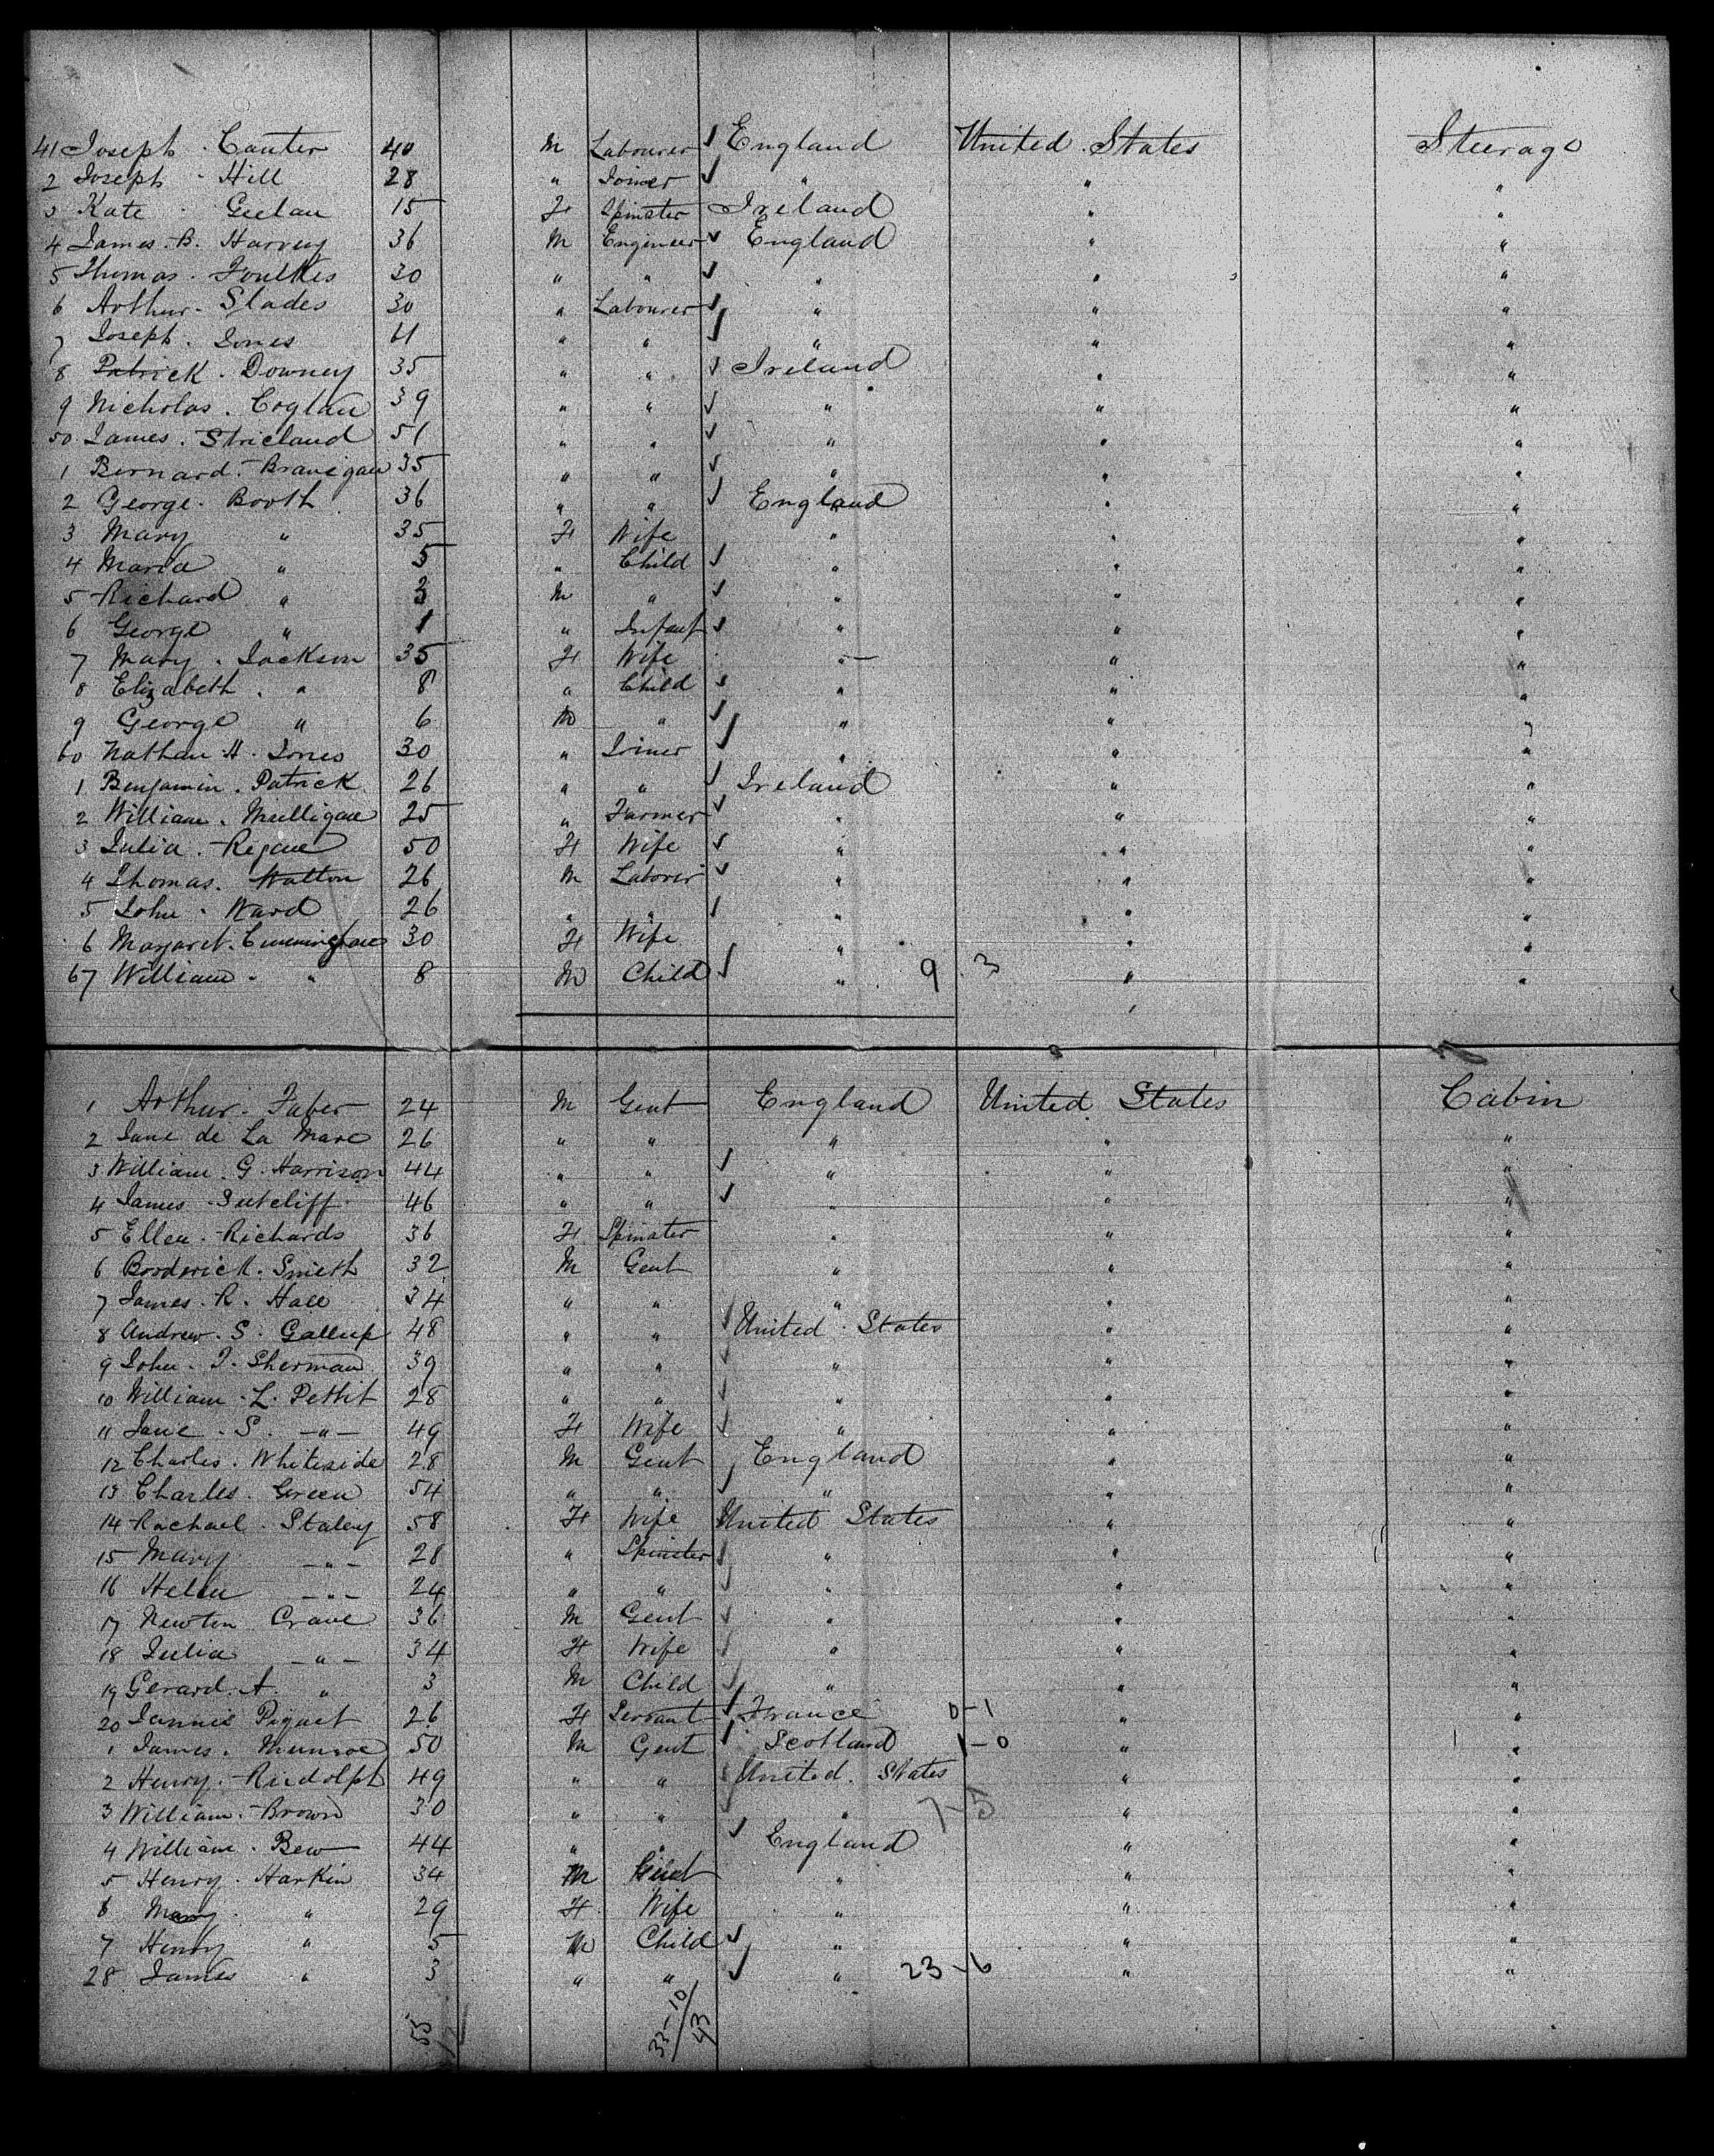 41 Joseph . Canter 40 M Labourer England United States Steerage
2 Joseph . Hill 28 " Joiner " " "
3 Kate . Geelan 15 F Spinster Ireland " "
4 James . B. Harvey 36 M Engineer England " "
5 Thomas . Foulkes 30 " " " " "
6 Arthur . Slades 30 " Labourer " " "
7 Joseph . Jones 41 " " " " "
8 Patrick . Downey 35 " " Ireland " "
9 Nicholas . Coglan 39 " " " " "
50 James . Stricland 51 " " " " "
1 Bernard . Branigan 35 " " " " "
2 George . Booth 36 " " England " "
3 Mary " 35 F Wife " " "
4 Maria " 5 " Child " " "
5 Richard " 3 M " " " "
6 George " 1 " Infant " " "
7 Mary . Jackson 35 F Wife " " "
8 Elizabeth . " 8 " Child " " "
9 George " 6 M " " " "
60 Nathan H. Jones 30 " Joiner " " "
1 Benjamin . Patrick 26 " " Ireland " "
2 William . Mulligan 25 " Farmer " " "
3 Julia . Regan 50 F Wife " " "
4 Thomas . Walton 26 M Laborer " " "
5 John . Ward 26 " " " " "
6 Margaret . 30 F Wife " " "
67 William . " 8 M Child " 9 3 " "
1 Arthur . Faber 24 M Gent England United States Cabin
2 Jane de La Mare 26 " " " " "
3 William . G . Harrison 44 " " " " "
4 James . Sutcliff 46 " " " " "
5 Ellen . Richards 36 F Spinster " " "
6 Broderick . Smith 32 M Gent " " "
7 James . R . Hall 34 " " " " "
8 Andrew . S . Gallup 48 " " United States " "
9 John . T . Sherman 39 " " " " "
10 William . L . Pettit 28 " " " " "
11 Jane . S . " 49 F Wife " " "
12 Charles . Whiteside 28 M Gent England " "
13 Charles . Green 54 " " " " "
14 Rachael . Staley 58 F Wife United States " "
15 Mary " 28 " Spinster " " "
16 Helen " 24 " " " " "
17 Newton Crane 36 M Gent " " "
18 Julia " 34 F Wife " " "
19 Gerard . A . " 3 M Child " " "
20 Jannie Piquet 26 F Servant France 0-1 " "
1 James . Munroe 50 M Gent Scotland 1-0 " "
2 Henry . Rudolph 49 " " United States " "
3 William . Brown 30 " " " 7-5 " "
4 William . Bew 44 " " England " "
5 Henry . Harkin 34 M Gent " " "
6 Mary . " 29 F Wife " " "
7 Henry " 5 M Child " " "
28 James " 3 " " " 23-6 " "
55
33-10
43